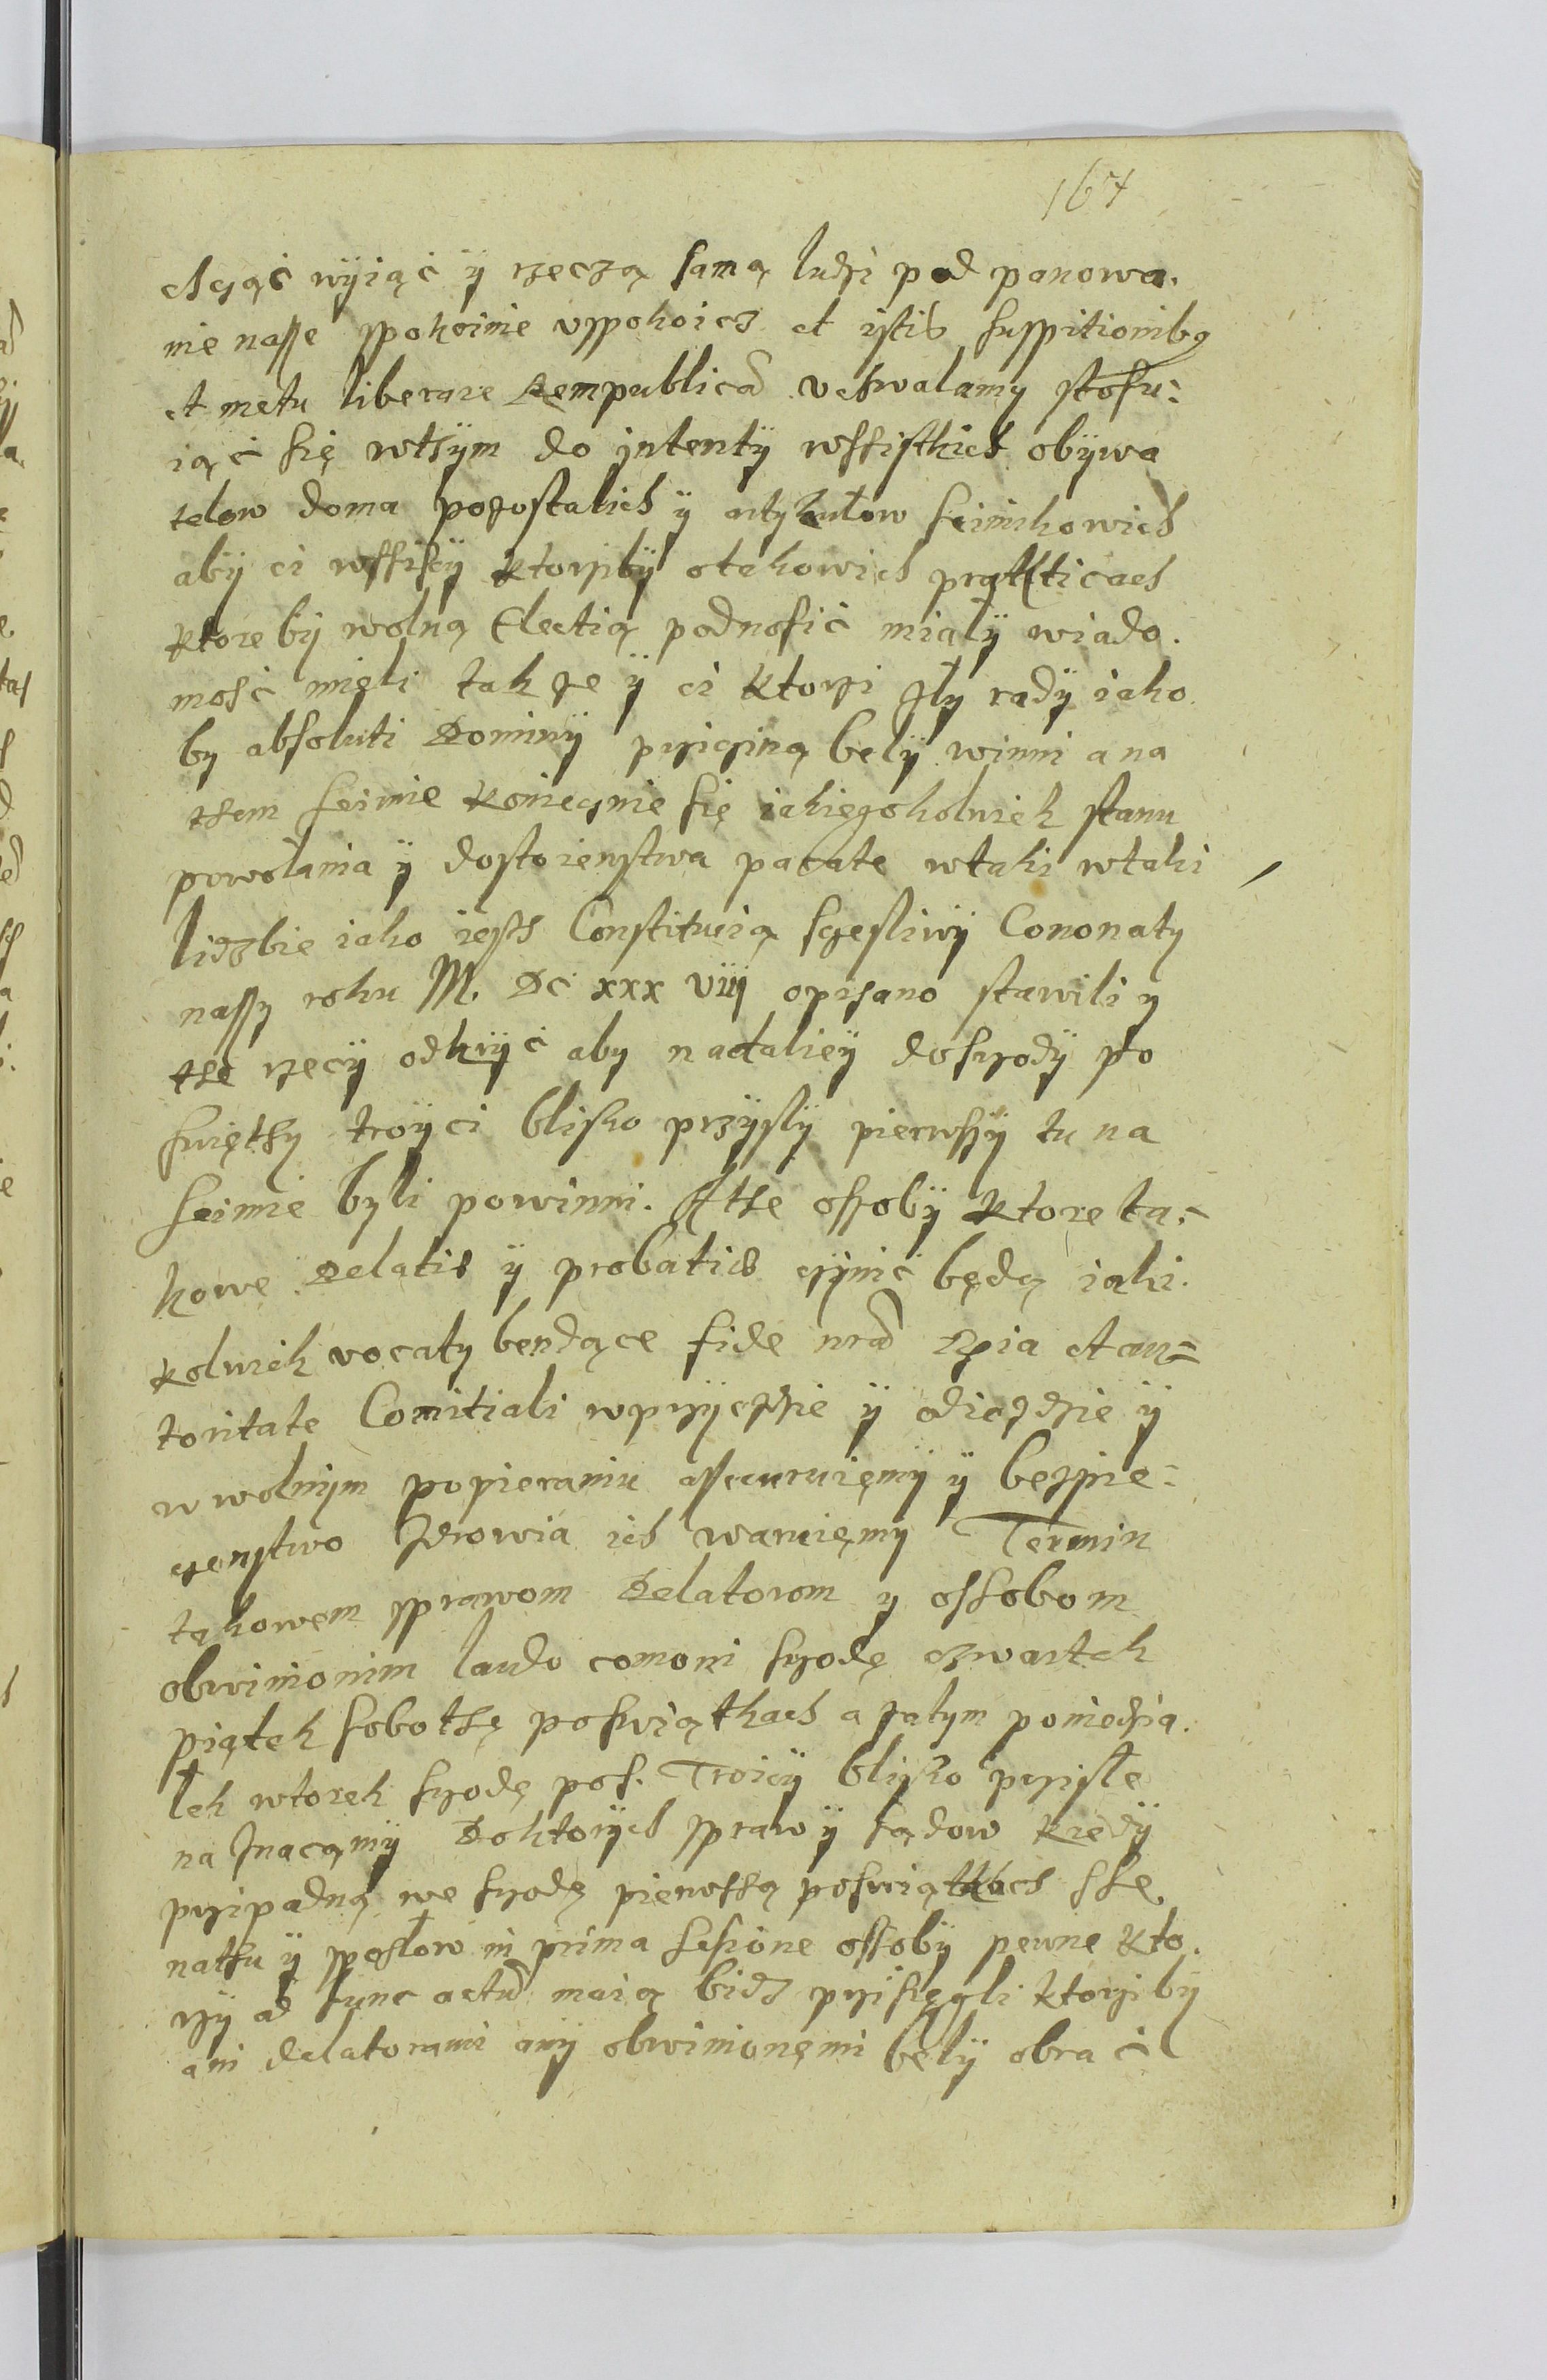 167
chcąć wÿiąć ÿ rzeczą samą ludzi pod panowa.
nie nasse spokoinie vspokoicz et istis suspitionibq
et metu liberare Rempublicā vchwalamy stosu:
iąć się wthÿm do intentÿ wssistkich obÿwa
telow doma pozostalich ÿ artykułow seimikowich
abÿ ci wssisczÿ ktorzibÿ otakowich prakticach
ktore bÿ wolną Electią podnosić miałÿ wiado.
mość mięli tak że ÿ ci ktorzi złÿ radÿ iako
by absoluti Dominÿ prziczÿną belÿ winni a na
them seimie koniecznie się iakiegokolwiek stanu
powołania ÿ dostoienstwa pacate wtaki wtaki
lidzbie iako iesth Constitucią sczęsliwÿ Coronaty
nassÿ roku M. DC xxx viij opisano stawili y
the rzecÿ odkrÿć aby nadaliey dosrzodÿ po
swięthÿ troÿci blisko przÿslÿ pierwszÿ tu na
seimie byli powinni. A the ossobÿ ktore ta:
kowe Delatis ÿ probatis czÿnić będą iaki.
kolwiek vocaty bendące fide nrā Rgia et au=
toritate Comitiali wprzÿezdzie ÿ odiezdzie ÿ
w wolnÿm popieraniu assecuruięmÿ ÿ bezpie:
czenstwo zdrowia ich waruięmy Termin
takowem sprawom Delatorom y ossobom
obwinionim laudo comoni srzodę czwartek
piątek sobothę poswiątkach a zatym poniedzia.
łek wtorek srzodę pos. Troicÿ blisko przisłe
na znacamÿ Doktorÿch spraw ÿ sądow kiedÿ
przipadną we srzodę pierwssą poswiątkach s Se
nathu ÿ posłow in prima sesione ossobÿ pewne kto.
rzÿ ad hunc actū maią bidz prziseęgli ktorzi bÿ
ani delatorami anÿ obwinionęmi bęlÿ obracil